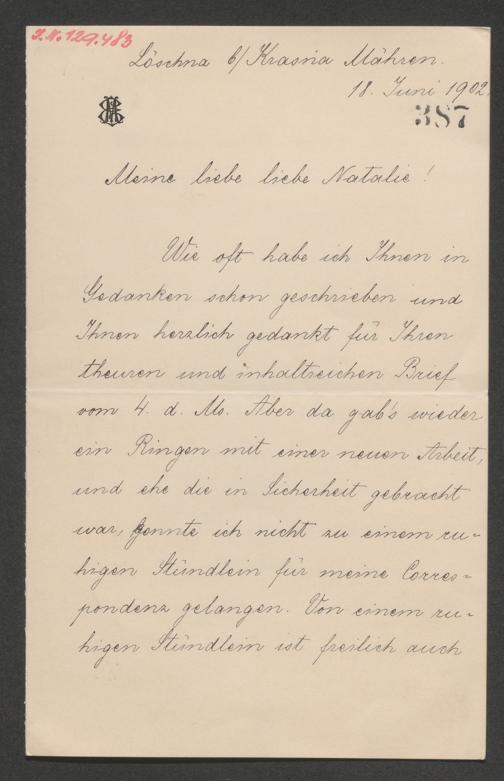 I.N. 129.483
Löschna b/ Krasna Mähren.
18. Juni 1902.
387
Meine liebe liebe Natalie!
Wie oft habe ich Ihnen in
Gedanken schon geschrieben und
Ihnen herzlich gedankt für Ihren
theuren und inhaltreichen Brief
vom 4. d. Ms. Aber da gab's wieder
ein Ringen mit einer neuen Arbeit,
und ehe die in Sicherheit gebracht
war, konnte ich nicht zu einem ru-
higen Stündlein für meine Corres-
pondenz gelangen. Von einem ru-
higen Stündlein ist freilich auch